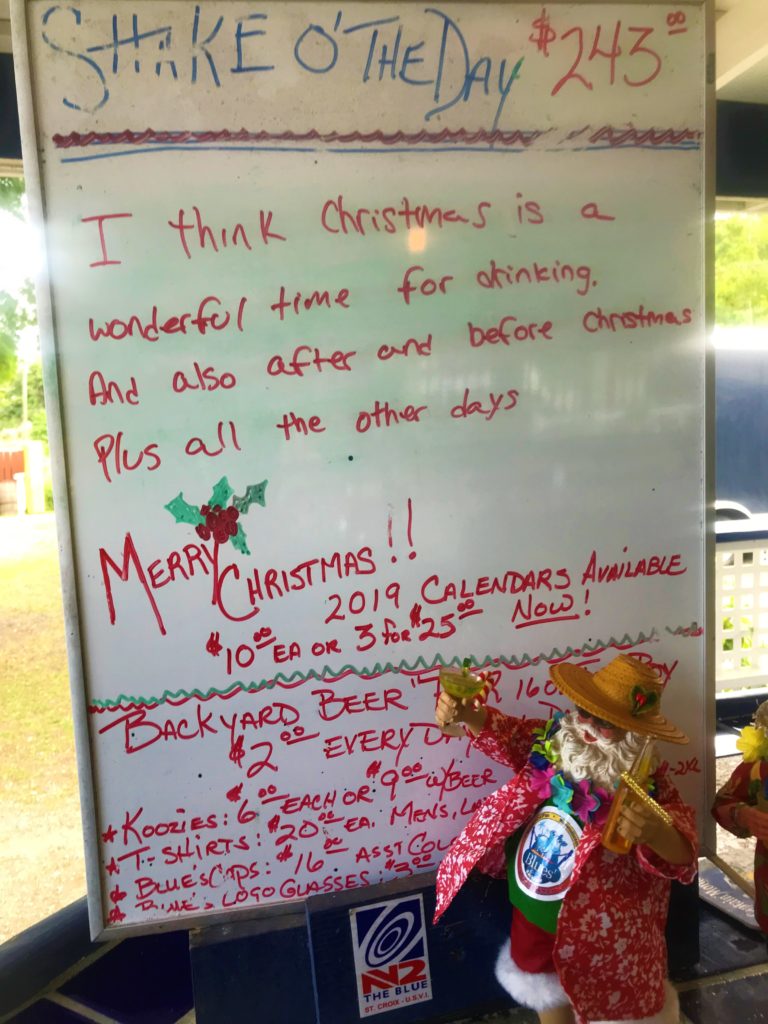 SHAKE O' THE DAY $243.00
I think Christmas is a
wonderful time for drinking.
And also after and before Christmas
Plus all the other days
MERRY CHRISTMAS!!
2019 CALENDARS AVAILABLE
$10.00 EA OR 3 for $25.00 NOW!
BACKYARD BEER 16oz
$2.00 EVERY
* KOOZIES: $6.00 EACH OR $9.00 w/BEER
* T-SHIRTS: $20.00 EA. MENS, -2XL
* BLUES CAPS: $16.00 ASST COL
* LOGO GLASSES: $3.00
Blues
N2
THE BLUE
ST. CROIX - U.S.V.I.